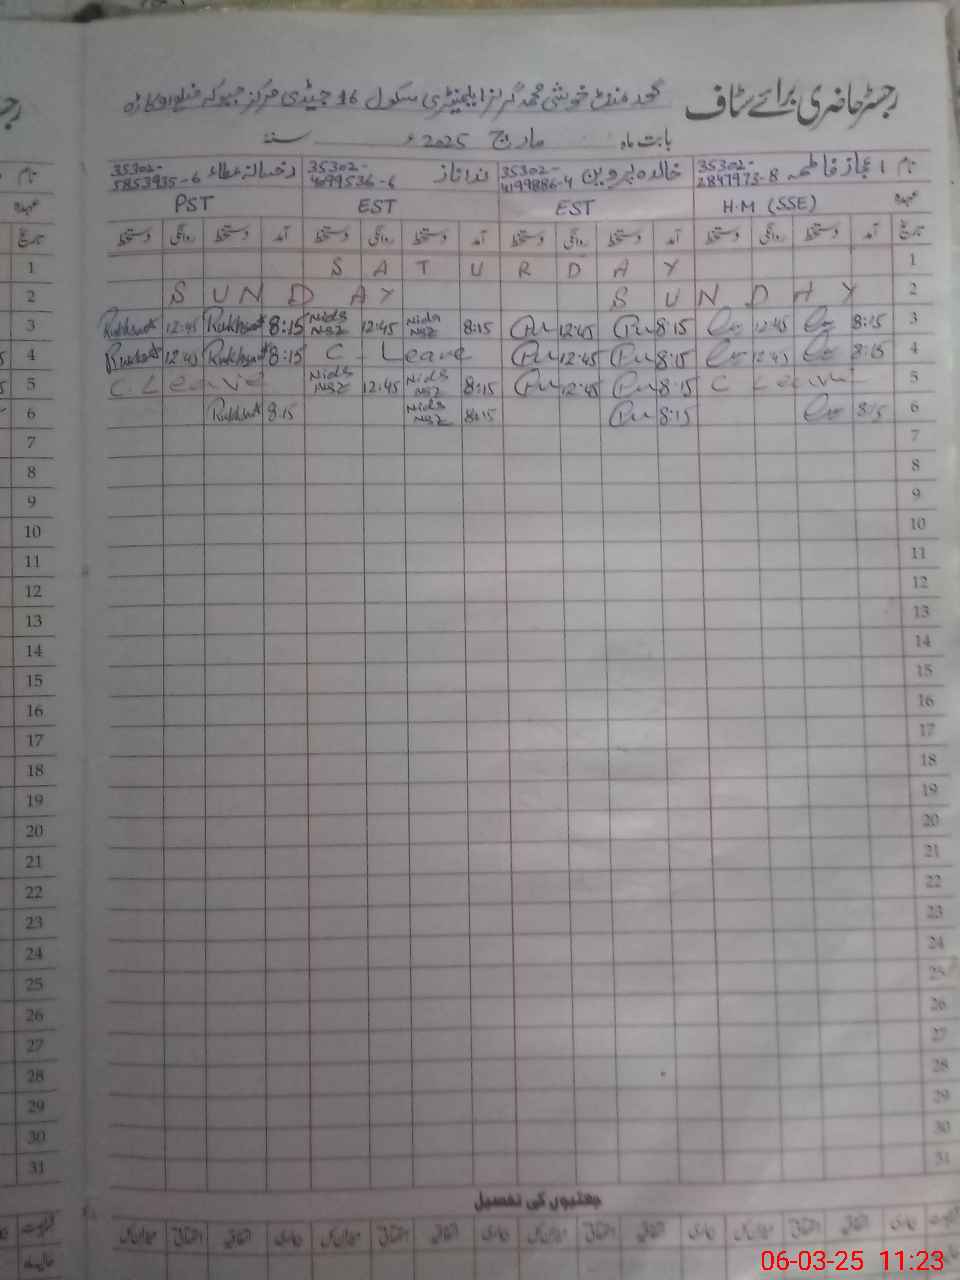 رجسٹر حاضری برائے سٹاف
گورنمنٹ خوشی محمد گرلز ایلیمنٹری سکول 16 جیڈی مرکز جبوکہ ضلع اوکاڑہ
بابت ماہ مارچ 2025ء سنہ
نام اعجاز فاطمہ 35302-2847973-8 خالدہ پروین 35302-4199886-4 ندا ناز 35302-4099536-6 رخسانہ عطاء 35302-5853935-6
عہدہ H.M (SSE) EST EST PST
تاریخ آمد دستخط روانگی دستخط آمد دستخط روانگی دستخط آمد دستخط روانگی دستخط آمد دستخط روانگی دستخط تاریخ
1 S A T U R D A Y 1
2 S U N D A Y S U N D A Y 2
Rukhsat 12:45 Rukhsat 8:15 Nida Naz 12:45 Nida Naz 8:15 12:45 8:15 12:45 8:15 3
4 Rukhsat 12:45 Rukhsat 8:15 C. Leave 12:45 8:15 12:45 8:15 4
5 C. Leave Nida Naz 12:45 Nida Naz 8:15 12:45 8:15 C Leave 5
6 Rukhsat 8:15 Nida Naz 8:15 8:15 8:15 6
7 7
8 8
9 9
10 10
11 11
12 12
13 13
14 14
15 15
16 16
17 17
18 18
19 19
20 20
21 21
22 22
23 23
24 24
25 25
26 26
27 27
28 28
29 29
30 30
31 31
چھٹیوں کی تفصیل
06-03-25 11:23